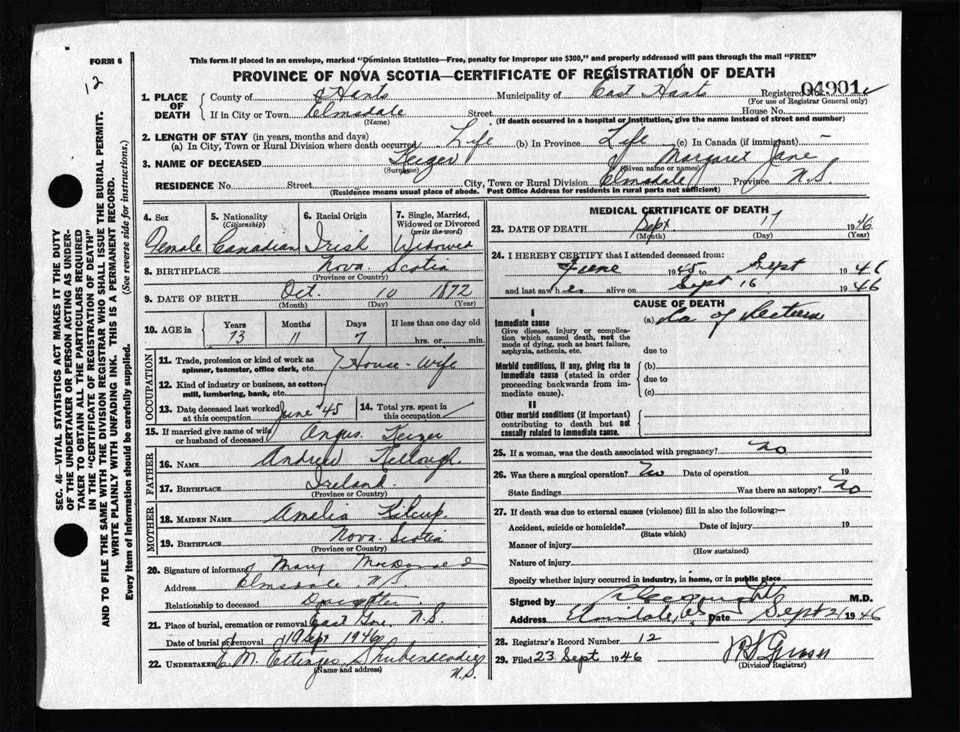 FORM 6
12
This form if placed in an envelope, marked "Dominion Statistics—Free, penalty for improper use $300," and properly addressed will pass through the mail "FREE"
PROVINCE OF NOVA SCOTIA—CERTIFICATE OF REGISTRATION OF DEATH
04901
Registered No.
(For use of Registrar General only)
1. PLACE OF DEATH
County of Hants Municipality of East Hants
If in City or Town Elmsdale Street House No.
(Name) (If death occurred in a hospital or institution, give the name instead of street and number)
2. LENGTH OF STAY (in years, months and days)
(a) In City, Town or Rural Division where death occurred Life (b) In Province Life (c) In Canada (if immigrant) —
3. NAME OF DECEASED Keizer Margaret Jane
(Surname) (Given name or names)
RESIDENCE No. Street City, Town or Rural Division Elmsdale Province N.S.
(Residence means usual place of abode. Post Office Address for residents in rural parts not sufficient)
SEC. 46—VITAL STATISTICS ACT MAKES IT THE DUTY
OF THE UNDERTAKER OR PERSON ACTING AS UNDER-
TAKER TO OBTAIN ALL THE PARTICULARS REQUIRED
IN THE "CERTIFICATE OF REGISTRATION OF DEATH"
AND TO FILE THE SAME WITH THE DIVISION REGISTRAR WHO SHALL ISSUE THE BURIAL PERMIT.
WRITE PLAINLY WITH UNFADING INK. THIS IS A PERMANENT RECORD.
Every item of information should be carefully supplied. (See reverse side for instructions.)
4. Sex Female
5. Nationality (Citizenship) Canadian
6. Racial Origin Irish
7. Single, Married, Widowed or Divorced (write the word) Widowed
8. BIRTHPLACE Nova Scotia
(Province or Country)
9. DATE OF BIRTH Oct. 10 1872
(Month) (Day) (Year)
10. AGE in Years Months Days If less than one day old
73 11 7 hrs. or min.
OCCUPATION
11. Trade, profession or kind of work as spinner, teamster, office clerk, etc. House-Wife
12. Kind of industry or business, as cotton-mill, lumbering, bank, etc.
13. Date deceased last worked at this occupation June '45
14. Total yrs. spent in this occupation
15. If married give name of wife or husband of deceased Angus Keizer
FATHER
16. NAME Andrew Kellough
17. BIRTHPLACE Ireland
(Province or Country)
MOTHER
18. MAIDEN NAME Amelia Kilcup
19. BIRTHPLACE Nova Scotia
(Province or Country)
20. Signature of informant Mary MacDonald
Address Elmsdale N.S.
Relationship to deceased Daughter
21. Place of burial, cremation or removal East Gore, N.S.
Date of burial 19 Sept 1946
22. UNDERTAKER E. M. Ettinger Shubenacadie
(Name and address) N.S.
MEDICAL CERTIFICATE OF DEATH
23. DATE OF DEATH Sept 17 1946
(Month) (Day) (Year)
24. I HEREBY CERTIFY that I attended deceased from:
June 1945 to Sept 1946
and last saw her alive on Sept 16 1946
CAUSE OF DEATH
I
Immediate cause (a) Ca of
Give disease, injury or complication which caused death, not the mode of dying, such as heart failure, asphyxia, asthenia, etc.
due to
Morbid conditions, if any, giving rise to immediate cause (stated in order proceeding backwards from immediate cause).
(b)
due to
(c)
II
Other morbid conditions (if important) contributing to death but not causally related to immediate cause.
25. If a woman, was the death associated with pregnancy? No
26. Was there a surgical operation? No Date of operation 19
State findings Was there an autopsy? No
27. If death was due to external causes (violence) fill in also the following:—
Accident, suicide or homicide? Date of injury 19
(State which)
Manner of injury
(How sustained)
Nature of injury
Specify whether injury occurred in industry, in home, or in public place
Signed by M.D.
Address Date Sept 21 1946
28. Registrar's Record Number 12
29. Filed 23 Sept 1946
(Division Registrar)